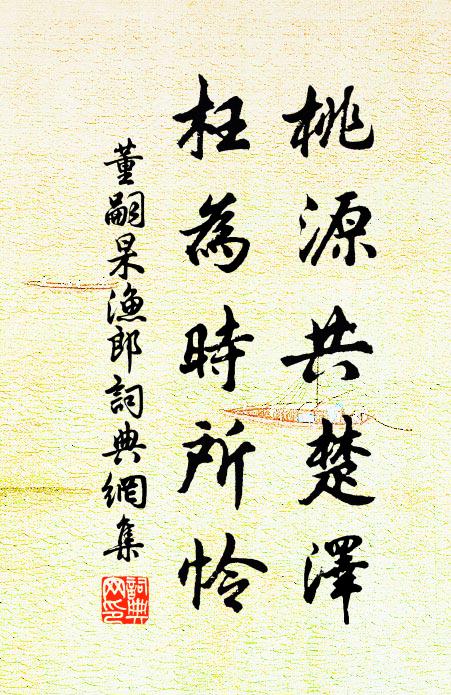 桃源共楚澤
枉為時所怜
董嗣杲漁郎詞典網集
詞典网印